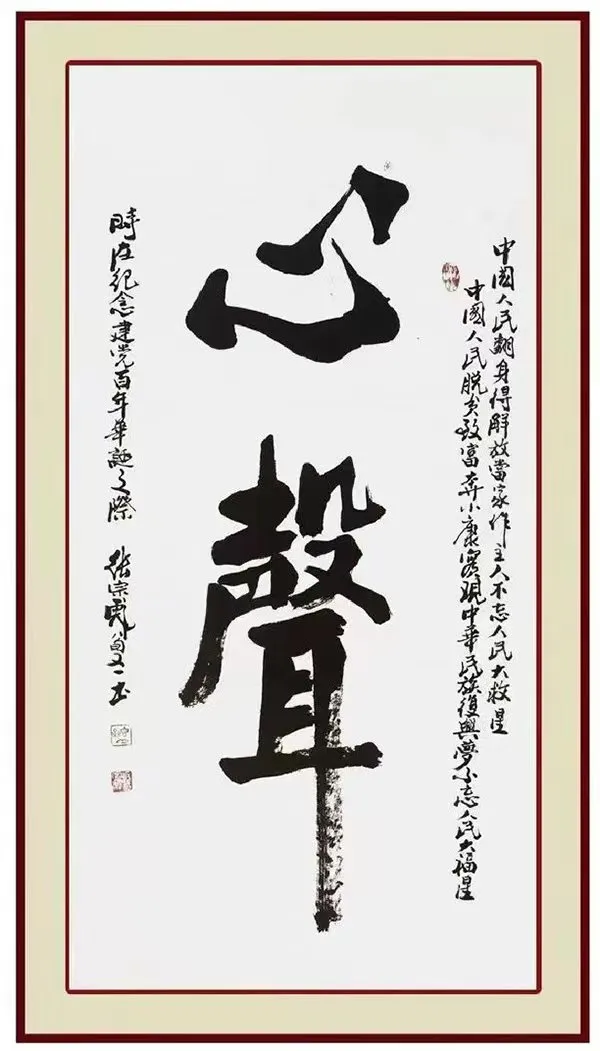 中國人民翻身得解放當家作主人不忘人民大救星
中國人民脱貧致富奔小康實現中華民族復興夢不忘人民大福星
心聲
時在紀念建党百年華誕之際
張宗彪
書